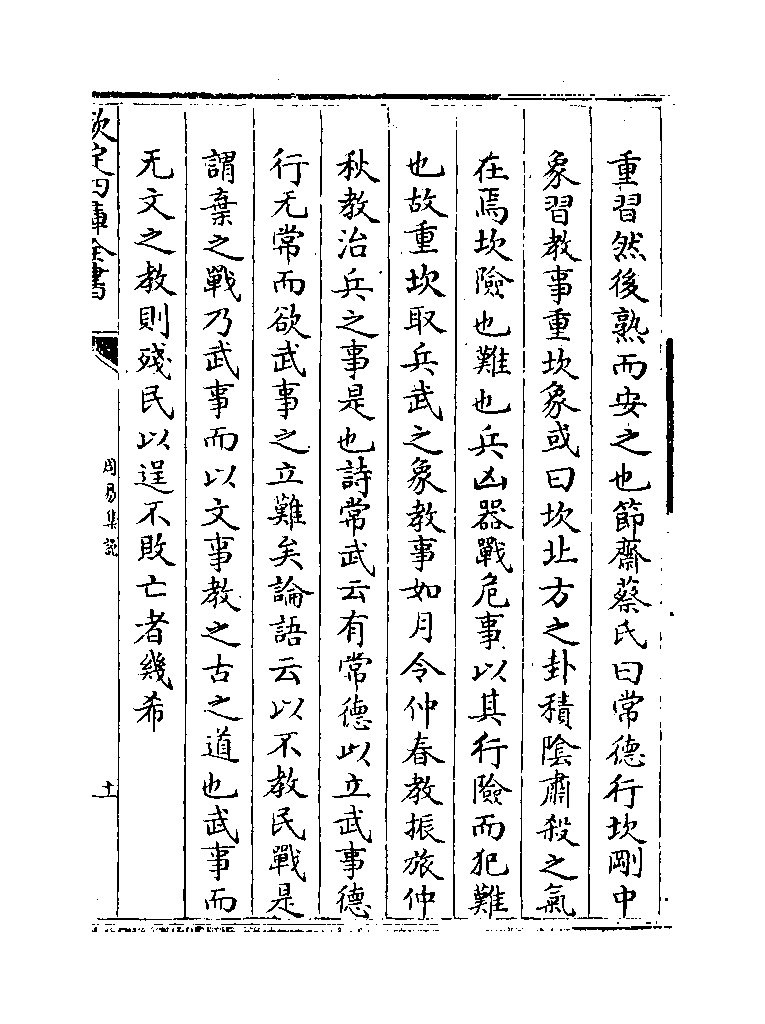 重習然後熟而安之也節齋蔡氏曰常德行坎剛中
象習教事重坎象或曰坎北方之卦積陰肅殺之氣
在焉坎險也難也兵凶器戰危事以其行險而犯難
也故重坎取兵武之象教事如月令仲春教振旅仲
秋教治兵之事是也詩常武云有常德以立武事德
行无常而欲武事之立難矣論語云以不教民戰是
謂棄之戰乃武事而以文事教之古之道也武事而
无文之教則殘民以逞不敗亡者幾希
欽定四庫全書
周易集說
十